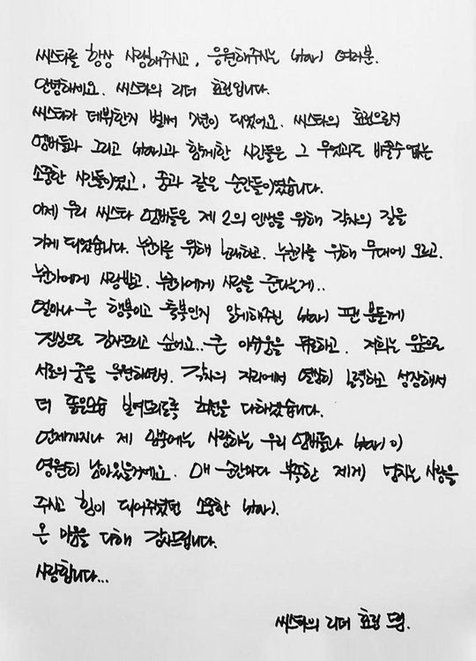 씨스타를 항상 사랑해주시고, 응원해주시는 star1 여러분.
안녕하세요. 씨스타의 리더 효린입니다.
씨스타가 데뷔한지 벌써 7년이 되었어요. 씨스타의 효린으로서
멤버들과 그리고 star1과 함께한 시간들은 그 무엇과도 바꿀수 없는
소중한 시간들이였고, 꿈과 같은 순간들이였습니다.
이제 우리 씨스타 멤버들은 제 2의 인생을 위해 각자의 길을
가게 되었습니다. 누군가를 위해 노래하고. 누군가를 위해 무대에 오르고.
누군가에게 사랑받고. 누군가에게 사랑을 준다는게..
얼마나 큰 행복이고 축복인지 알게해주신 star1 팬 분들께
진심으로 감사드리고 싶어요.. 큰 아쉬움을 뒤로하고. 저희는 앞으로
서로의 꿈을 응원하면서. 각자의 자리에서 열심히 노력하고 성장해서
더 좋은모습 보여드리도록 최선을 다하겠습니다.
언제까지나 제 맘속에는 사랑하는 우리 멤버들과 star1이
영원히 남아있을거에요. 매 순간마다 부족한 제게 넘치는 사랑을
주시고 힘이 되어주셨던 소중한 star1.
온 마음을 다해 감사드립니다.
사랑합니다...
씨스타의 리더 효린 드림.